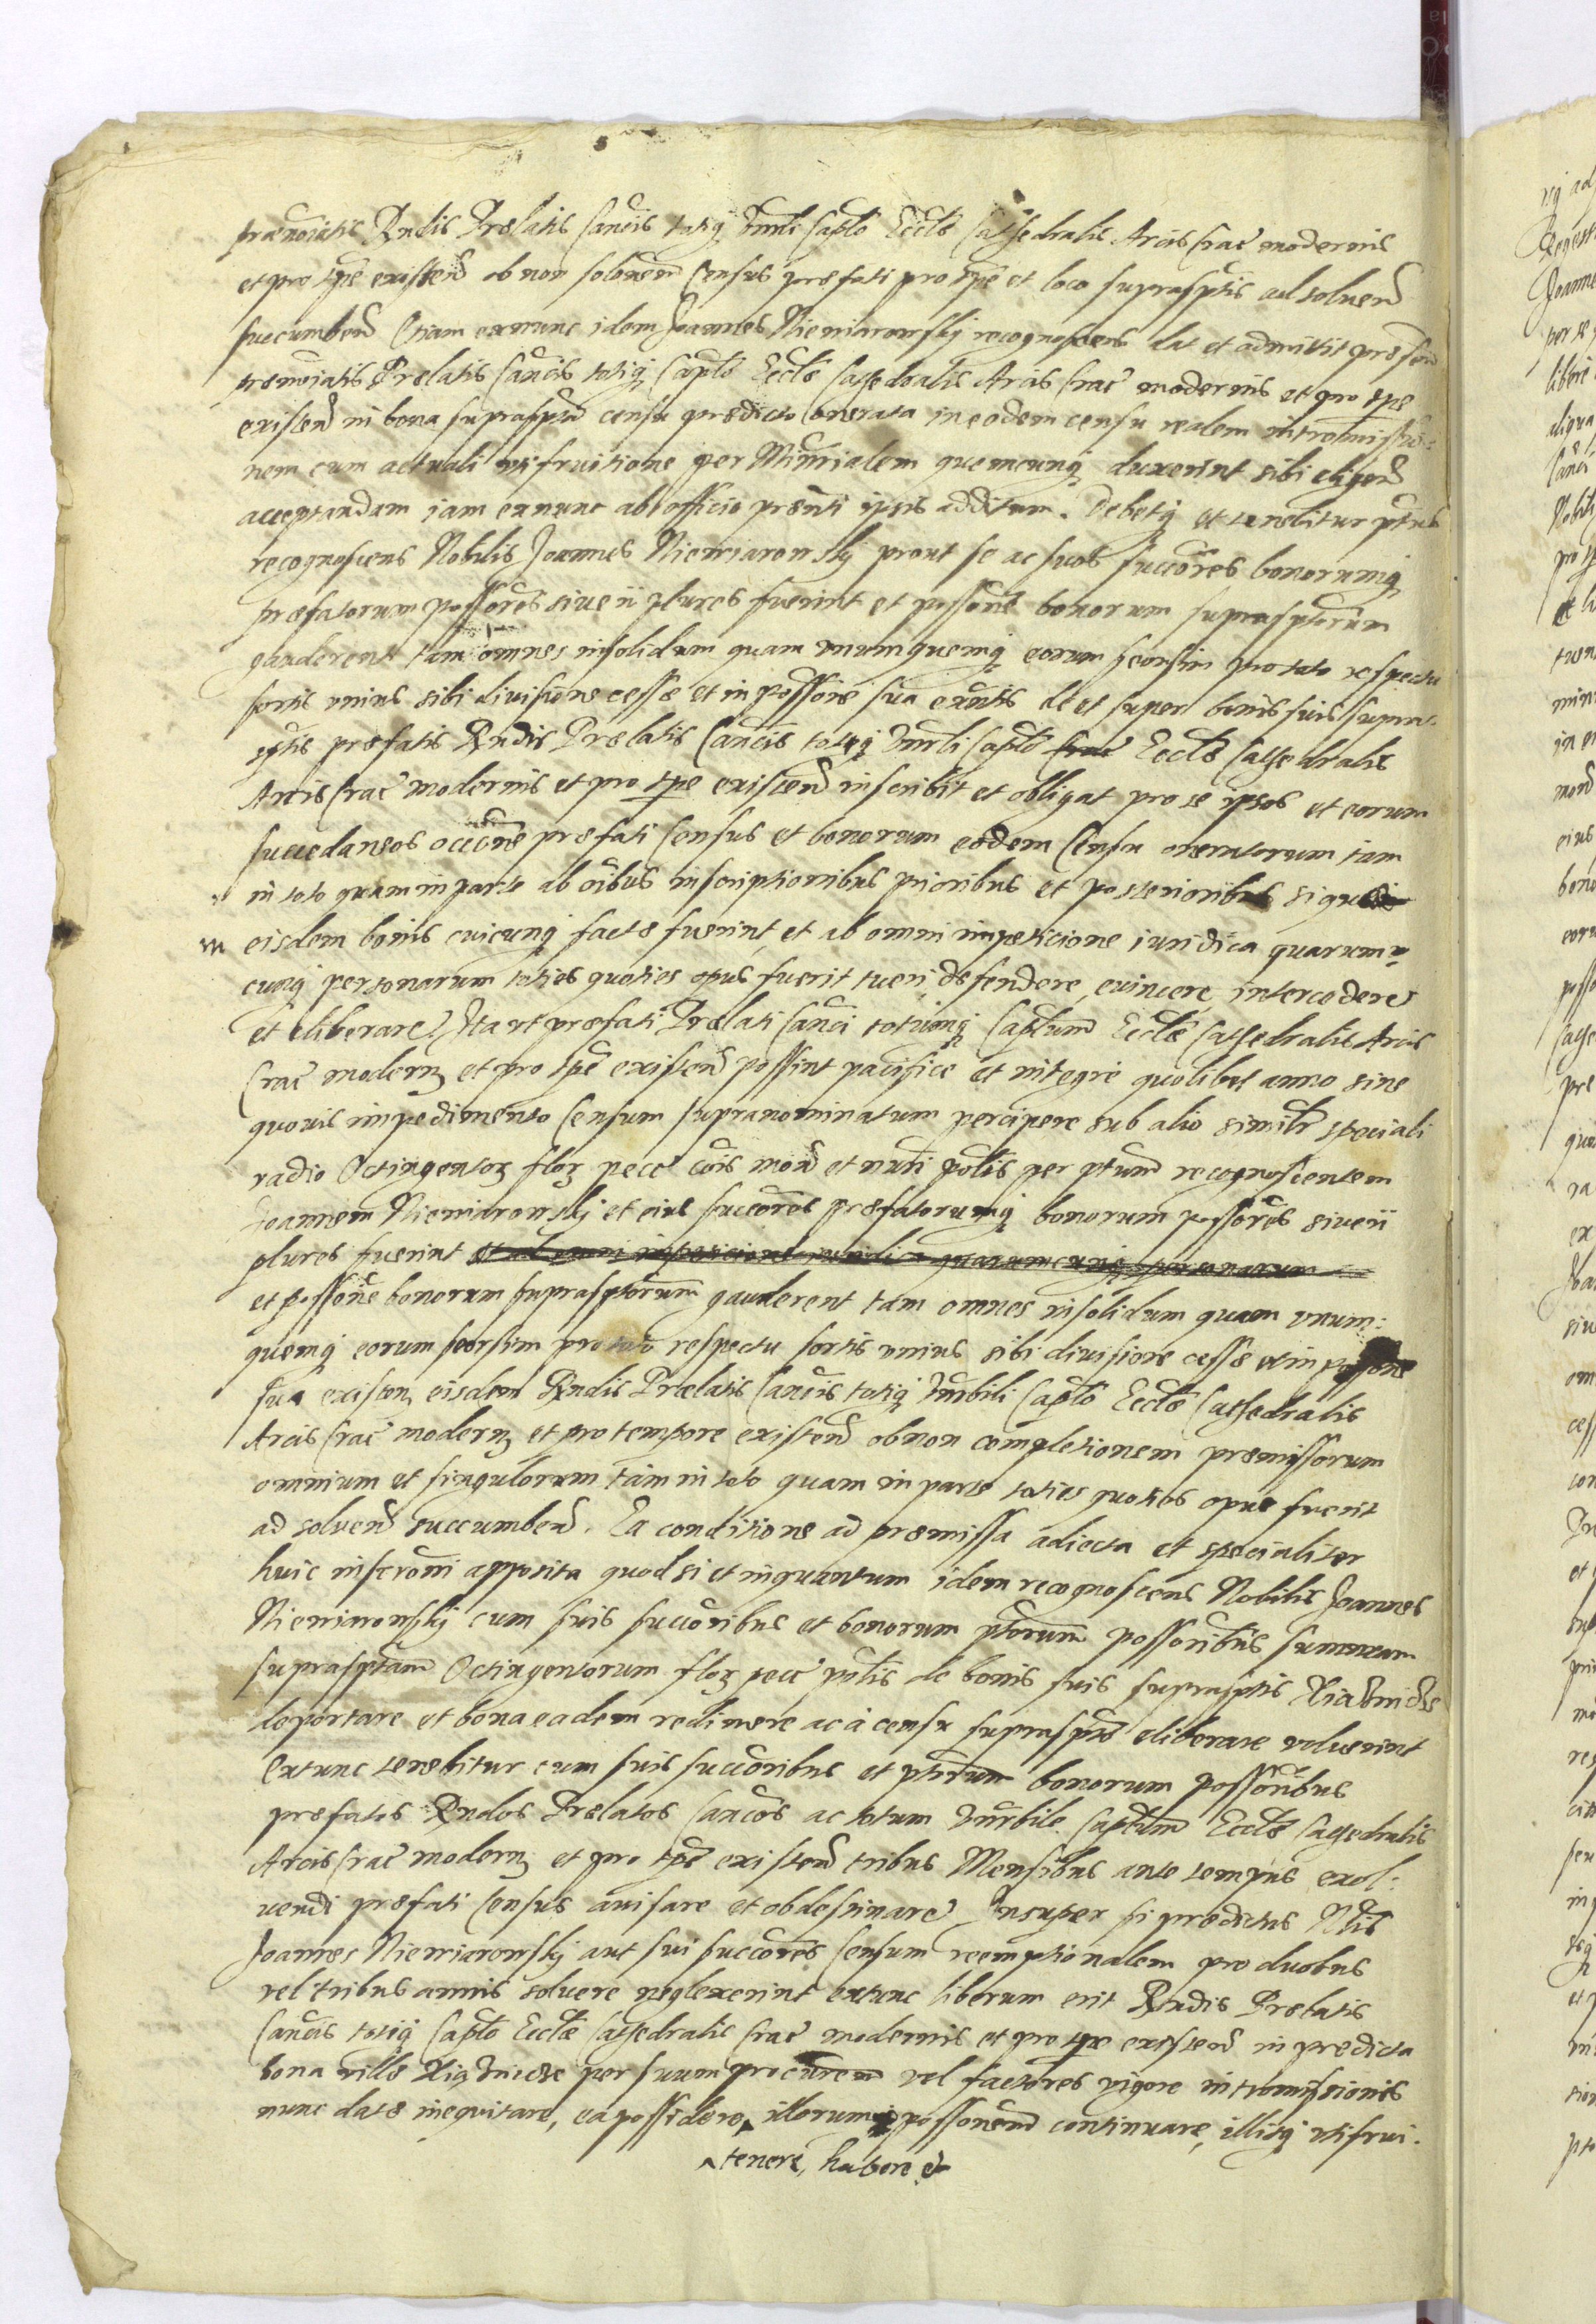 prænoiatis Rndis Prælatis Cancis totiq Vnrli Caplo Eccle Cathedralis Arcis Crac modernis
et pro tpe existend ob non solonem Census præfati pro tpe et loco suprascptis ad solvend
succumbend Etiam exnunc idem Joannes Niemiarowskj recognoscens dat et admittit præsen
prænoiatis Prælatis Cancis totiq Caplo Eccle Cathedralis Arcis Crac modernis et pro tpe
existend in bona suprascpta censu prædicto onerata in eodem censu realem intromissio:
nem cum actuali usufruitione per Ministerialem quemcunq duxerint sibi eligend
acceptandam iam exnunc ab officio prænti ipsis additum. Debetq et tenebitur ptus
recognoscens Nobilis Joannes Niemiarowskj prout se ac suos succores bonorumq
præfatorum possores sive ii plures fuerint et possone bonorum suprascptorum
gauderent tam omnes insolidum quam unumquemq eorum seorsim pro rato respectu
sortis unius sibi divisione cessæ et in possone sua exntis de et super bonis suis supra
sptis præfatis Rndis Prælatis Cancis totiq Vnrli Caplo Crac Eccle Cathedralis
Arcis Crac modernis et pro tpe existend inscribit et obligat pro se ipsos et eorum
succedaneos occone præfati Census et bonorum eodem Censu oneratorum tam
in toto quam in parte ab oibus inscriptionibus prioribus et posterioribus si quæ
in eisdem bonis cuicunq factæ fuerint, et ab omni impeticione iuridica quarum=
cunq personarum toties quoties opus fuerit tueri, defendere, evincere, intercedere
et eliberare. Ita ut præfati Prælati Canci totumq Captum Eccle Cathedralis Arcis
Crac modern et pro tpe existend possint pacifice et integre quolibet anno sine
quovis impedimento Censum supranominatum percipere sub alio similr speciali
vadio Octingentor flor pecc cois mone et nuri polis per ptum recognoscentem
Joannem Niemiarowskj et eius succores præfatorumq bonorum possores sive ii
plures fuerint et ab omni impeticione iuridica quarumcunq personarum
et possone bonorum suprascptorum gauderent tam omnes insolidum quam unum:
quemq eorum seorsim pro rato respectu sortis unius sibi divisione cessæ et in possone
sua existen, eisdem Rndis Prælatis Cancis totiq Vnrbili Caplo Eccle Cathedralis
Arcis Crac modern et pro tempore existend ob non completionem præmissorum
omnium et singulorum tam in toto quam in parte toties quoties opus fuerit
ad solvend succumbend. Ea conditione ad præmissa adiecta et specialiter
huic inscroni apposita quod si et inquantum idem recognoscens Nobilis Joannes
Niemiarowskj cum suis succoribus et bonorum ptorum possoribus summam
suprascptam Octingentorum flor pecc polis de bonis suis suprasptis
deportare et bona eadem redimere ac à censu suprasptо eliberare voluerint
Extunc tenebitur cum suis succoribus et ptorum bonorum possoribus
præfatos Rndos Prælatos Cancos ac totum Vnrbile Captum Eccle Cathedralis
Arcis Crac modern et pro tpe existend tribus Mensibus ante tempus exol:
vendi præfati Census avisare et obdestinare Insuper si prædictus Nlis
Joannes Niemiarowskj aut sui succores Censum reemptionalem pro duobus
vel tribus annis solvere neglexerint extunc liberum erit Rndis Prælatis
Cancis totiq Caplo Eccle Cathedralis Crac modernis et pro tpe existend in prædicta
bona villæ per suum procurem vel factores vigore intromissionis
nunc datæ inequitare, ea possidere, illorumq possonem continuare, illisq utifrui.
tenere, habere et